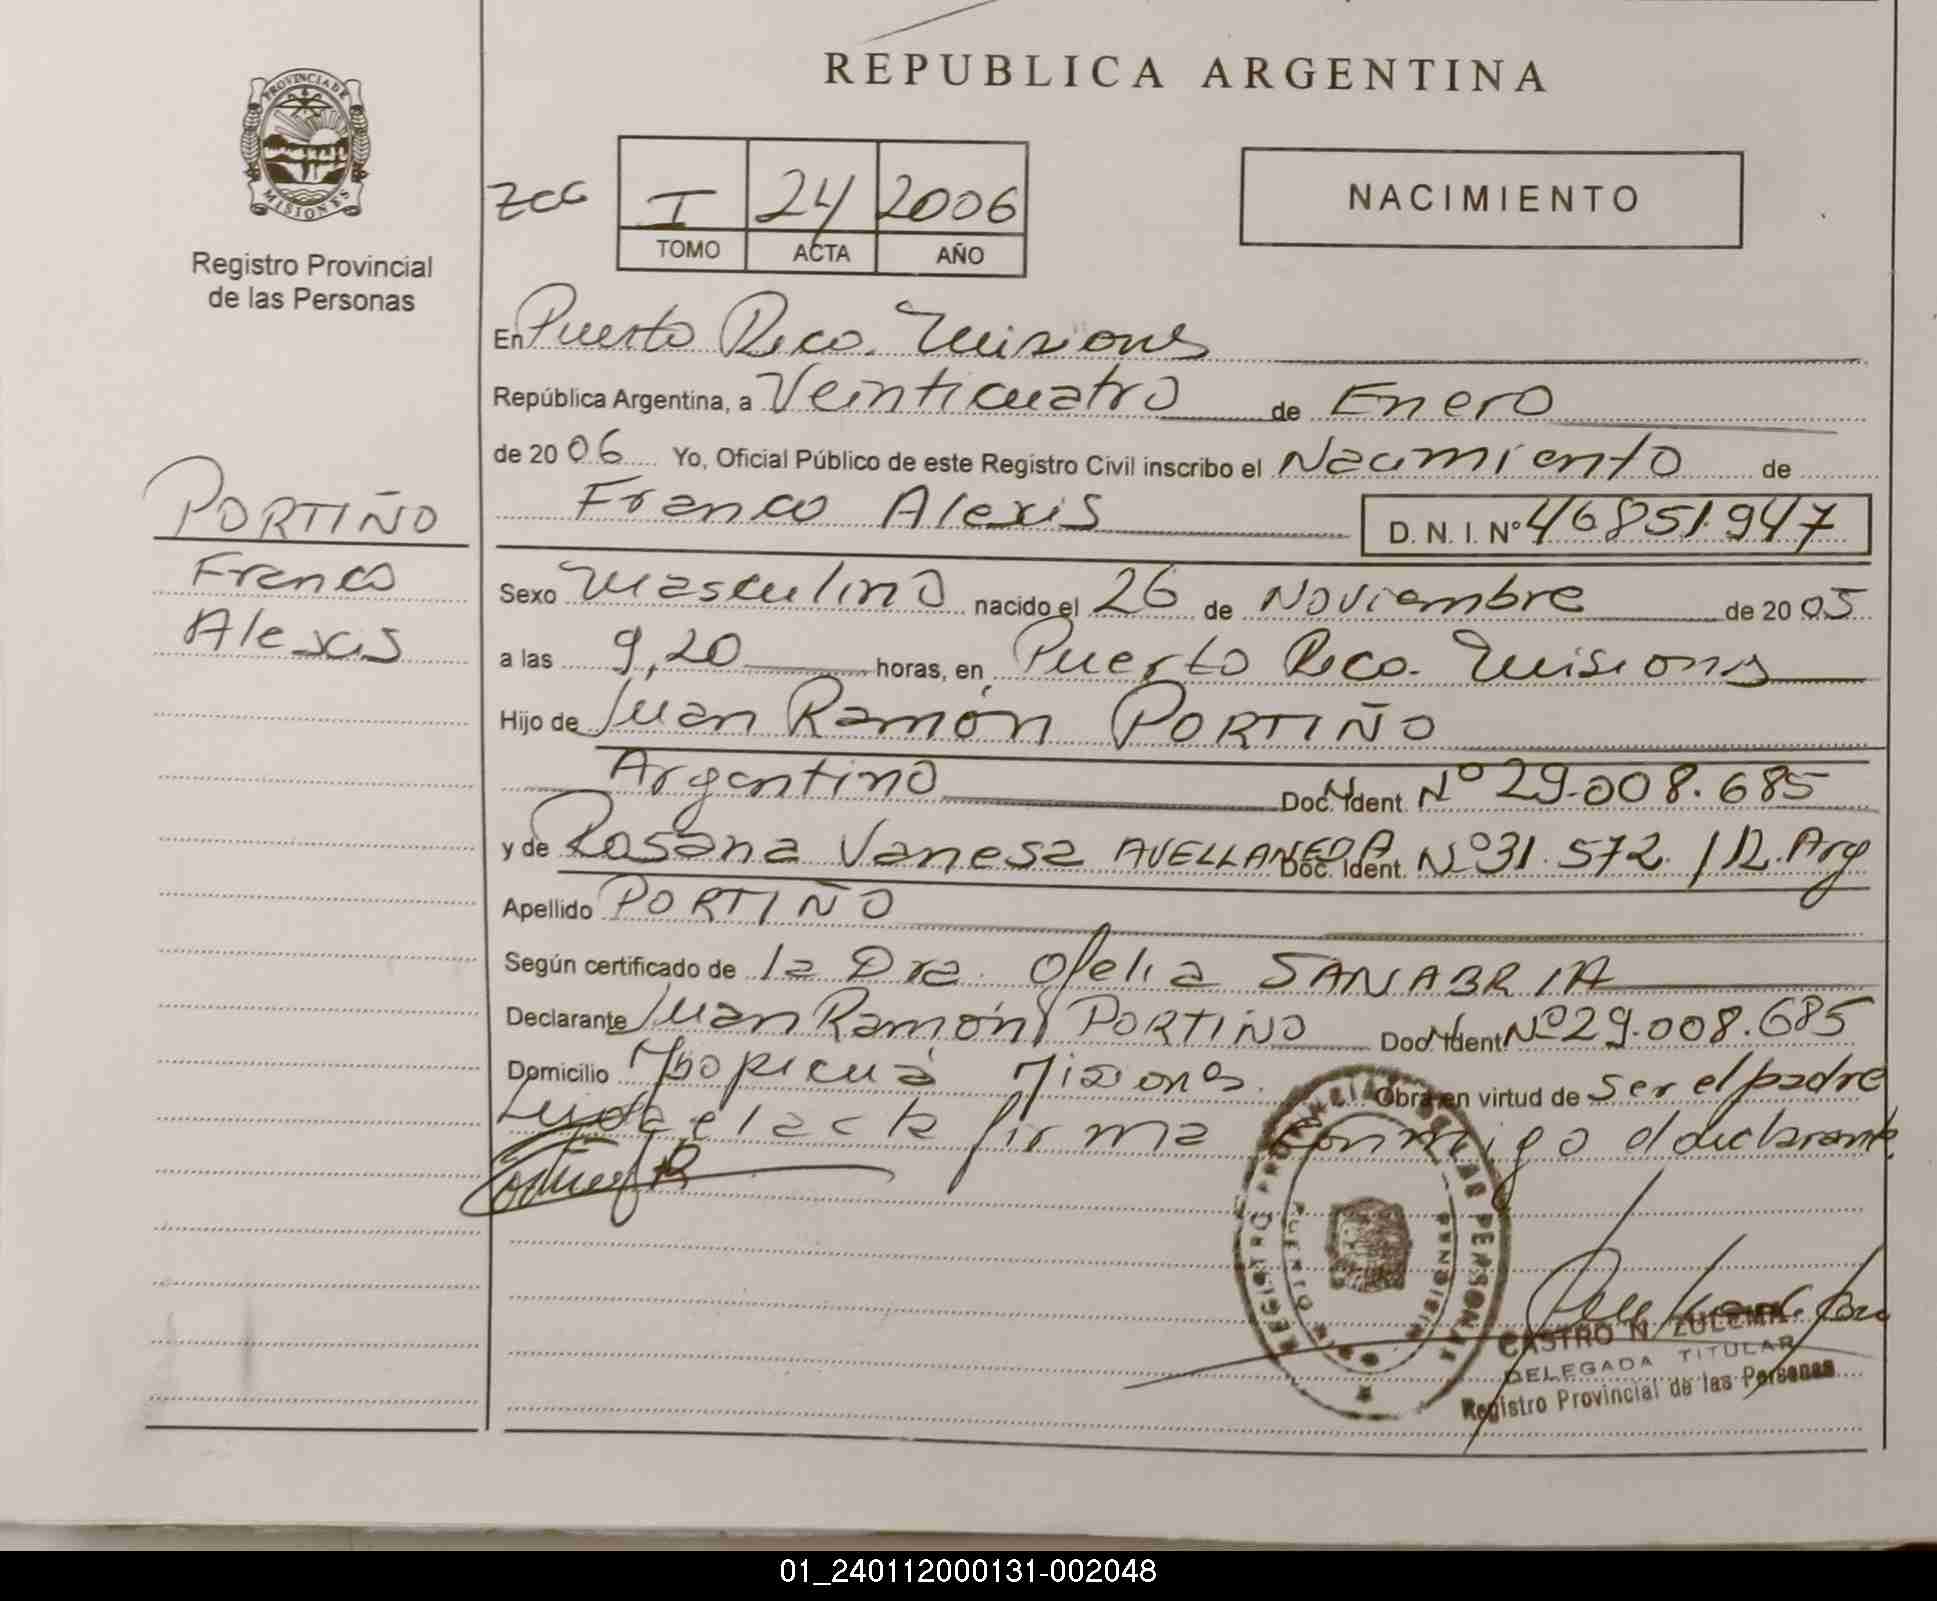 REPUBLICA ARGENTINA
PROVINCIA DE
MISIONES
Registro Provincial
de las Personas
ZCG
I 24 2006
TOMO ACTA AÑO
NACIMIENTO
PORTIÑO
Franco
Alexis
En Puerto Rico. Misiones
República Argentina, a Veinticuatro de Enero
de 2006 Yo, Oficial Público de este Registro Civil inscribo el Nacimiento de
Franco Alexis D. N. I. Nº 46851.947
Sexo Masculino nacido el 26 de Noviembre de 2005
a las 9,20 horas, en Puerto Rico. Misiones
Hijo de Juan Ramón PORTIÑO
Argentino Doc. Ident. Nº 29.008.685
y de Rosana Vanesa AVELLANEDA Doc. Ident. Nº 31.572. Arg
Apellido PORTIÑO
Según certificado de la Dra. Ofelia SANABRIA
Declarante Juan Ramón PORTIÑO Doc. Ident. Nº 29.008.685
Domicilio Mbopicuá Misiones. Obra en virtud de Ser el padre
Leída el acta firma conmigo el declarante.
REGISTRO PROVINCIAL DE LAS PERSONAS
PUERTO RICO
CASTRO N. ZULEMA
DELEGADA TITULAR
Registro Provincial de las Personas
01_240112000131-002048